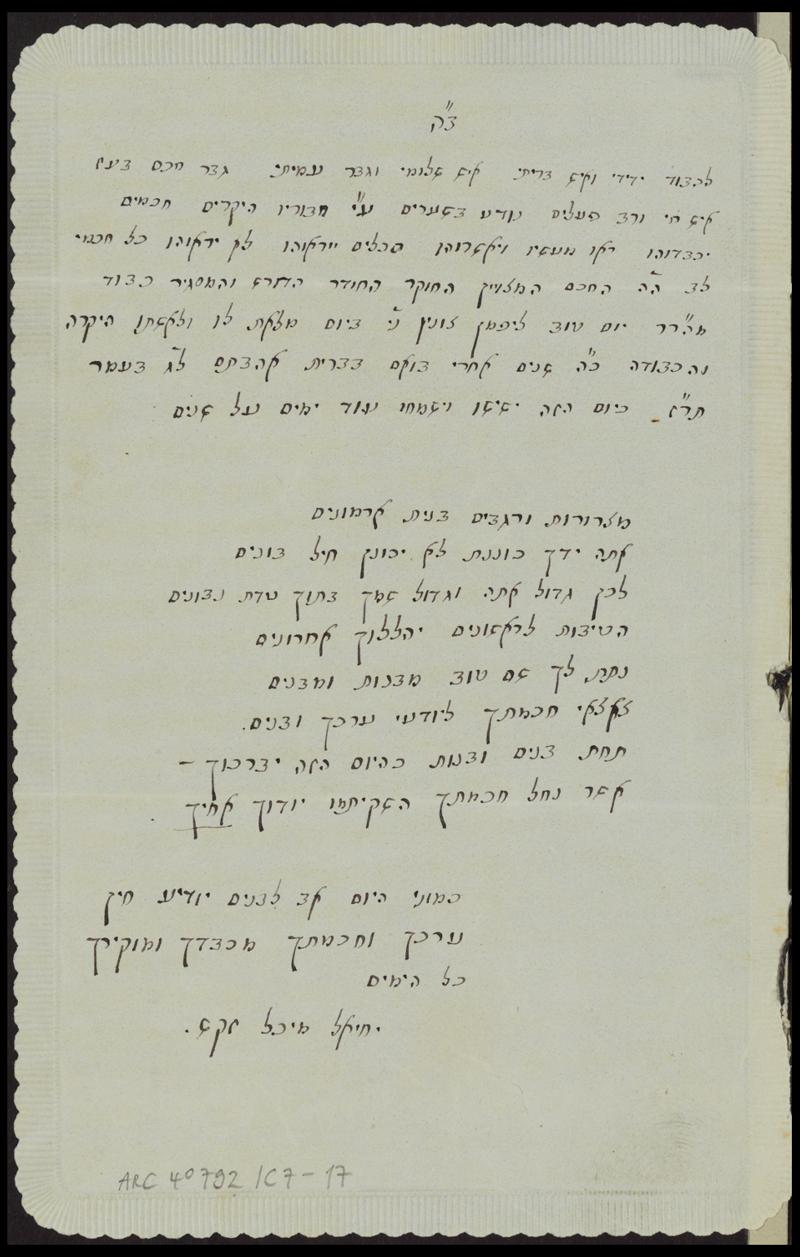 ב״ה
לכבוד ידידי ואיש בריתי איש שלומי וגבר עמיתי גבר חכם בעוז
איש חי ורב פעלים נודע בשערים ע״י חבוריו היקרים חכמים
יכבדוהו ראו מעשיו ויאשרוהו סכלים ייראוהו לא יראוהו כל חכמי
לב ה״ה החכם המצויין החוקר החודר הדורש והמסגיר כבוד
מה״רר יום טוב ליפמן צונץ נ״י ביום מלאת לו ולאשתו היקרה
והכבודה כ״ה שנים אחרי בואם בברית אהבתם ל״ג בעמר
תר״ז כיום הזה ישישו וישמחו עוד ימים על שנים
מצרורות ורגבים בנית ארמונים
אתה ידך כוננת לא יכונן חיל בונים
לכן גדול אתה וגדול שמך בתוך עדת נבונים
הטיבות לראשונים יהללוך אחרונים
נתת לך שם טוב מבנות ומבנים
צאצאי חכמתך ליודעי ערכך ובנים.
תחת בנים ובנות כהיום הזה יברכוך –
אשר נחל חכמתך השקיתמו יודוך אחיך.
כמוני היום אב לבנים יודיע חין
ערכך וחכמתך מכבדך ומוקירך
כל הימים
יחיאל מיכל זקש.
ARC 4° 792 / C7 – 17